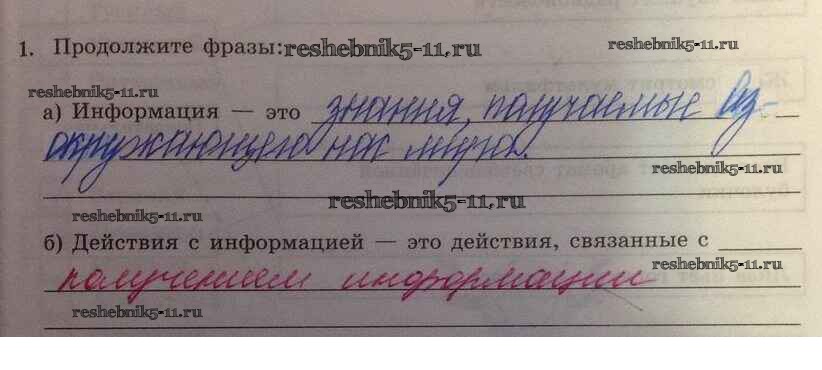 1. Продолжите фразы:reshebnik5-11.ru reshebnik5-11.ru
reshebnik5-11.ru
а) Информация — это знания, получаемые из
окружающего нас мира.
reshebnik5-11.ru
reshebnik5-11.ru reshebnik5-11.ru
б) Действия с информацией — это действия, связанные с
получением информации reshebnik5-11.ru
reshebnik5-11.ru